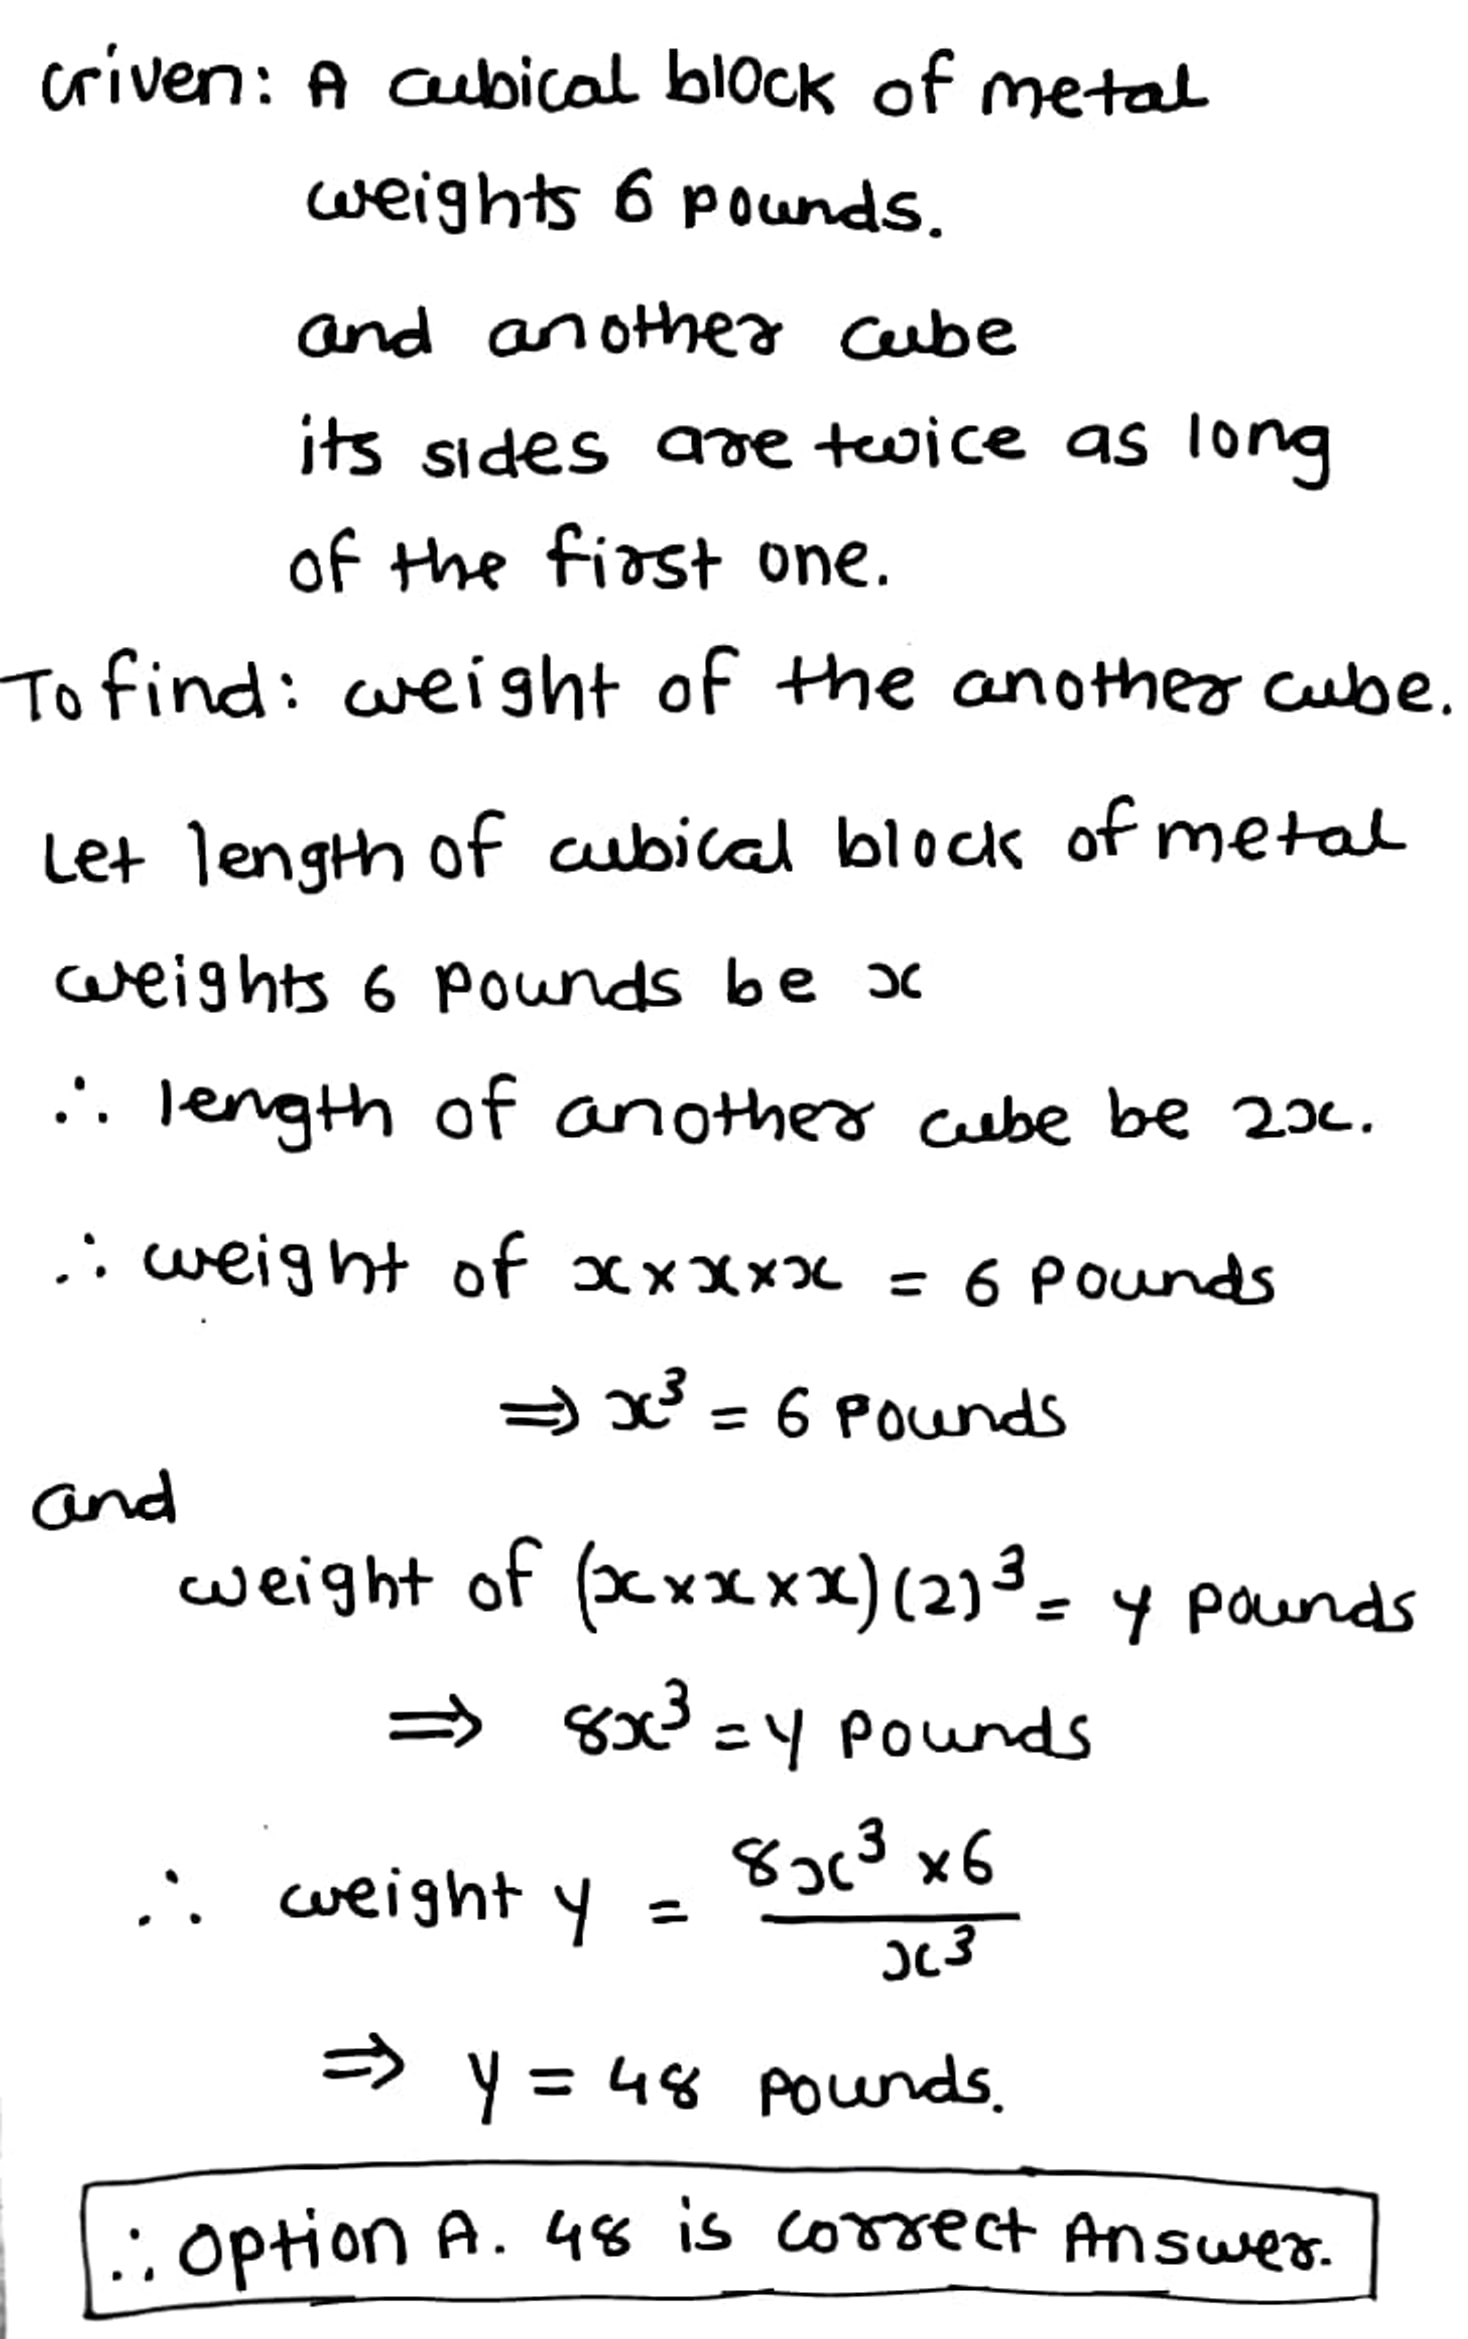 Given: A cubical block of metal
weights 6 pounds.
and another cube
its sides are twice as long
of the first one.
To find: weight of the another cube.
Let length of cubical block of metal
weights 6 pounds be x
∴ length of another cube be 2x.
∴ weight of x × x × x = 6 pounds
⇒ x³ = 6 pounds
and
weight of (x × x × x)(2)³ = y pounds
⇒ 8x³ = y pounds
∴ weight y = 8x³ × 6 / x³
⇒ y = 48 pounds.
∴ Option A. 48 is correct Answer.